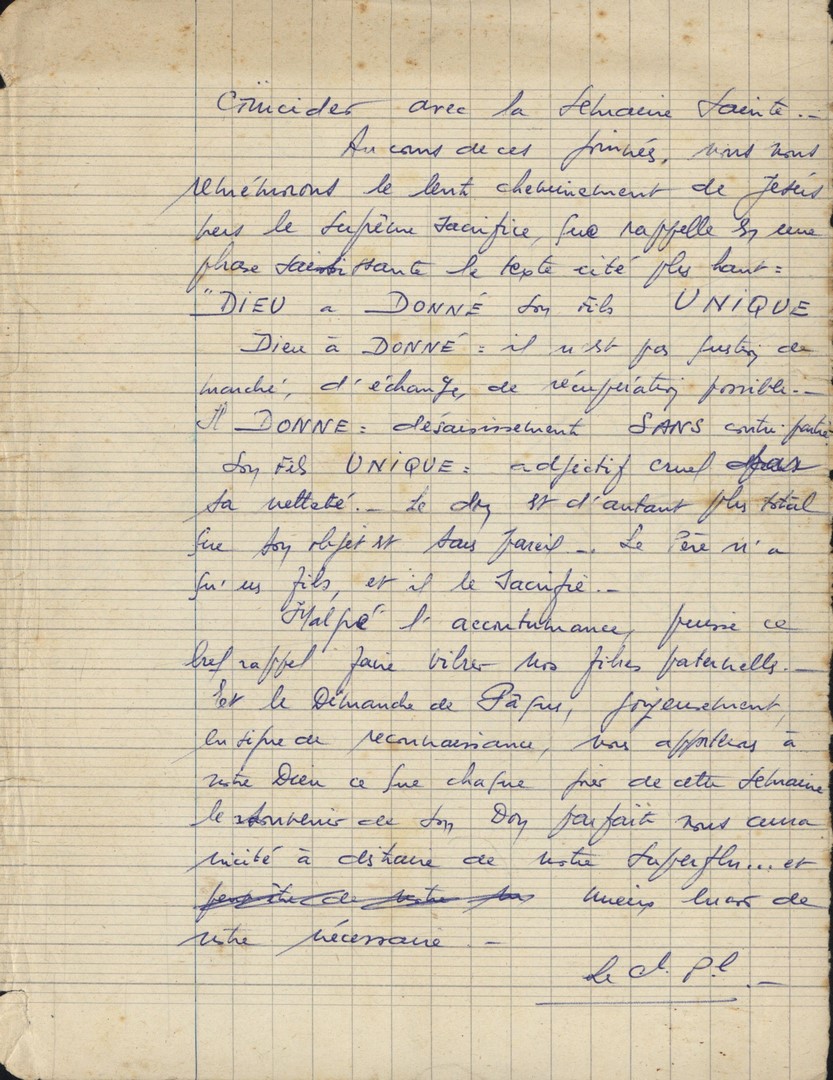 Coïncider avec la Semaine Sainte.-
Au cours de ces journées, nous nous
remémorons le lent cheminement de Jésus
vers le suprême Sacrifice, que rappelle en une
phrase saisissante le texte cité plus haut =
"DIEU a DONNÉ son Fils UNIQUE
Dieu à DONNÉ = il n'est pas question de
marché, d'échange, de récupération possible.-
Il DONNE = désaisissement SANS contre-partie
Son Fils UNIQUE = adjectif cruel dans
sa netteté.- Le don est d'autant plus total
que son objet est sans pareil.- Le Père n'a
qu'un fils, et il le sacrifie.-
Malgré l'accoutumance, puisse ce
bref rappel faire vibrer nos fibres paternelles.-
Et le Dimanche de Pâques, joyeusement,
en signe de reconnaissance, nous apporterons à
notre Dieu ce que chaque jour de cette Semaine
le souvenir de son Don parfait nous aura
incité à distraire de notre superflu... et
peut-être de notre mieux encore de
notre nécessaire.-
Le